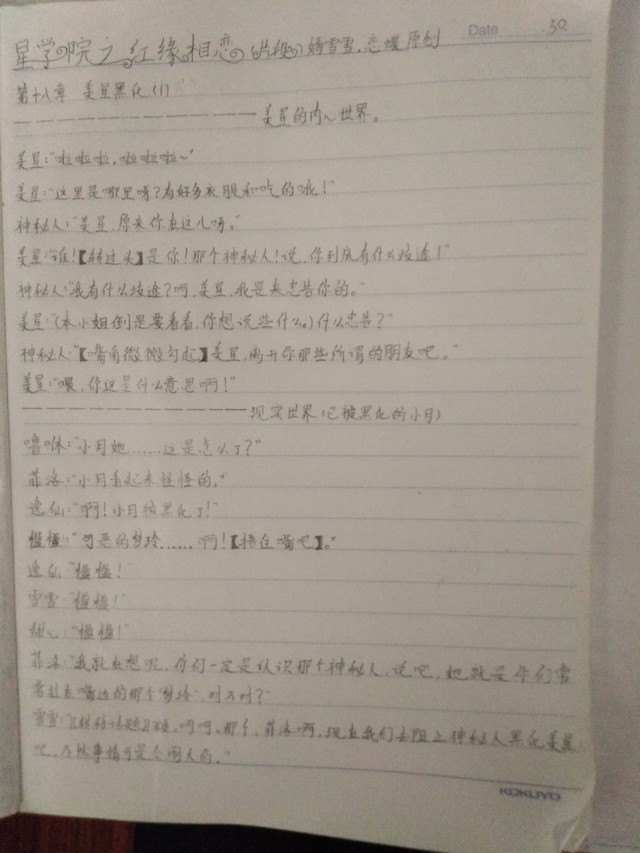 星学院之红缘相恋(片段)嫣雪雪.恋蝶原创
Date 30
第十八章 美星黑化(1)
————————————美星的内心世界。
美星:"啦啦啦,啦啦啦~"
美星:"这里是哪里呀?有好多衣服和吃的哦!"
神秘人:"美星,原来你在这儿呀。"
美星:"谁!【转过头】是你!那个神秘人!说,你到底有什么企途!"
神秘人:"我有什么企途?呵,美星,我是来忠告你的。"
美星:"(本小姐倒是要看看,你想说些什么。)什么忠告?"
神秘人:"【嘴角微微勾起】美星,离开你那些所谓的朋友吧。"
美星:"喂,你这是什么意思啊!"
————————————现实世界(已被黑化的小月)
噜咪:"小月她……这是怎么了?"
菲洛:"小月看起来怪怪的。"
逸仙:"啊!小月被黑化了!"
榅榅:"可恶的梦玲……啊!【捂住嘴吧】。"
逸仙:"榅榅!"
雪雪:"榅榅!"
甜心:"榅榅!"
菲洛:"我就在想呢,你们一定是认识那个神秘人,说吧,她就是你们常
常挂在嘴边的那个'梦玲',对不对?"
雪雪:"【转移话题】,呵呵,那个,菲洛啊,现在我们去阻止神秘人黑化美星
吧,不然事情可是个闹人的。"
KOKUYO